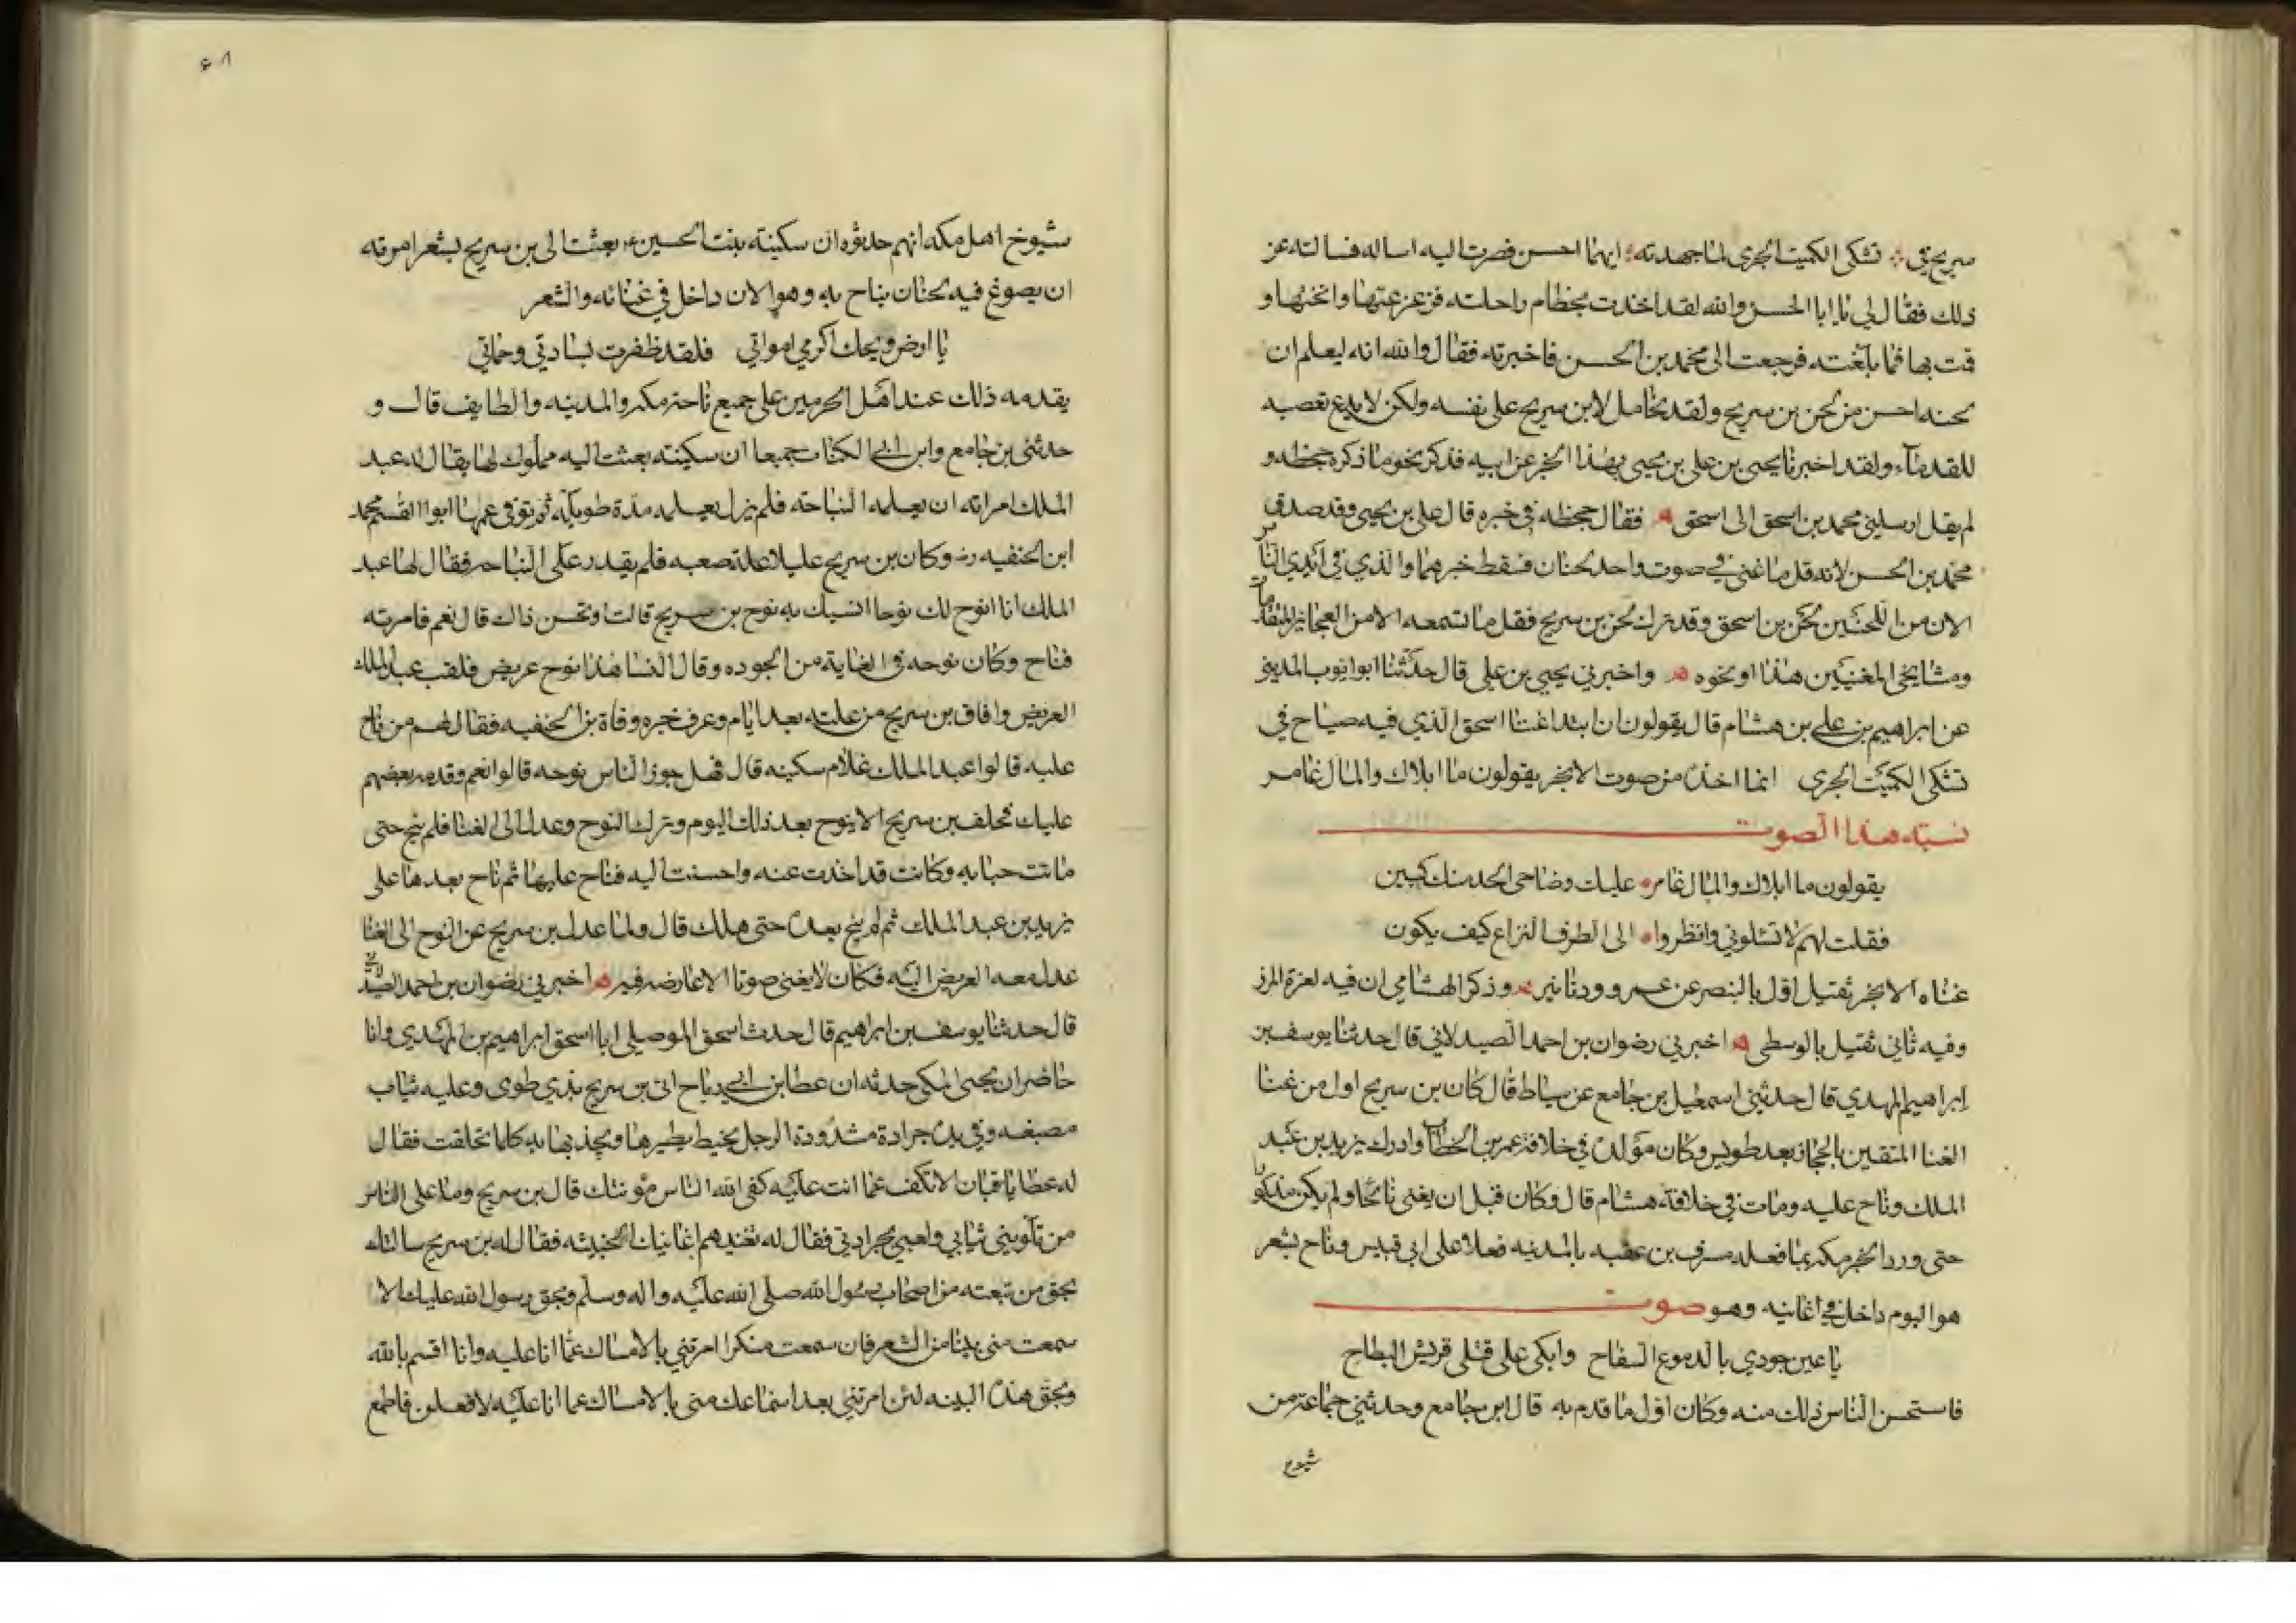 سريح في تشكى الكميت الجرى لما جهدته ايهما احسن فصرت اليه اساله فسالته عن
ذلك فقال لي يا ابا الحسن والله لقد اخذت بخطام راحلته فزعزعتها وانختها و
قمت بها فما بلغته فرجعت الى محمد بن الحسن فاخبرته فقال والله انه ليعلم ان
لحنه احسن من لحن بن سريح ولقد تحامل لابن سريح على نفسه ولكن لا يدع تعصبه
للقدماء ولقد اخبرنا يحيى بن على بن يحيى بهذا الخبر عن ابيه فذكر نحو ما ذكره جحظه و
لم يقل ارسلني محمد بن اسحق الى اسحق فقال جحظه في خبره قال على بن يحيى وقد صدق
محمد بن الحسن لانه قل ما غنى في صوت واحد لحنان فسقط خبرهما والذي في ايدي الناس
الان من اللحنين لحن بن اسحق وقد ترك لحن بن سريح فقل ما تسمعه الا من العجايز المتقدمات
ومشايخى المغنيين هذا او نحوه واخبرني يحيى بن على قال حدثنا ابو ايوب المديني
عن ابراهيم بن على بن هشام قال يقولون ان ابتدا غنا اسحق الذي فيه صياح في
تشكى الكميت الجرى انما اخذه من صوت الابجر يقولون ما ابلاك والمال غامر
نسبته هذا الصوت
يقولون ما ابلاك والمال غامر عليك وضاحى الجلد منك كنين
فقلت لهم لا تسئلوني وانظروا الى الطرف النزاع كيف يكون
غناه الابجر ثقيل اول بالبنصر عن عمرو ودنانير وذكر الهشامي ان فيه لعزة المرز
وفيه ثاني ثقيل بالوسطى اخبرني رضوان بن احمد الصيدلاني قال حدثنا يوسف بن
ابراهيم المهدي قال حدثني اسمعيل بن جامع عن سياط قال كان بن سريح اول من غنا
الغنا المتقن بالحجاز بعد طويس وكان مولده في خلافة عمر بن الخطاب وادرك يزيد بن عبد
الملك وناح عليه ومات في خلافة هشام قال وكان قبل ان يغنى نائحا ولم يكن مذكورا
حتى ورد الخبر مكه بما فعله مسرف بن عقبه بالمدينه فعلا على ابى قبيس وناح بشعر
هو اليوم داخل في اغانيه وهو صوت
يا عين جودي بالدموع السفاح وابكى على قتلى قريش البطاح
فاستحسن الناس ذلك منه وكان اول ما قدم به قال ابن جامع وحدثني جماعة من
شيوخ
شيوخ اهل مكه انهم حدثوه ان سكينته بنت الحسين بعثت الى بن سريح بشعر امرته
ان يصوغ فيه لحنان يناح به وهو الان داخل في غنائه والشعر
يا ارض ويحك اكرمي امواتي فلقد ظفرت بسادتي وحماتي
يقدمه ذلك عند اهل الحرمين على جميع ناحة مكه والمدينه والطايف قال و
حدثني بن جامع وابن ابي الكنات جميعا ان سكينته بعثت اليه مملوك لها يقال له عبد
الملك امراته ان يعلمه النياحه فلم يزل يعلمه مدة طويله ثم توفى عمها ابو القسم محمد
ابن الحنفيه رضـ وكان بن سريح عليلا علة صعبه فلم يقدر على النياحه فقال لها عبد
الملك انا انوح لك نوحا انسيك به نوح بن سريح قالت او تحسن ذاك قال نعم فامرته
فناح وكان نوحه في الغاية من الجوده وقال النسا هذا نوح عريض فلقب عبد الملك
الغريض وافاق بن سريح من علته بعد ايام وعرف خبره وفاة بن الحنفيه فقال لهم من ناح
عليه قالوا عبد الملك غلام سكينه قال فهل جوز الناس نوحه قالوا نعم وقدمه بعضهم
عليك فحلف بن سريح الا ينوح بعد ذلك اليوم وترك النوح وعدل الى الغنا فلم ينح حتى
ماتت حبابه وكانت قد اخذت عنه واحسنت اليه فناح عليها ثم ناح بعدها على
يزيد بن عبد الملك ثم لم ينح بعده حتى هلك قال ولما عدل بن سريح عن النوح الى الغنا
عدل معه الغريض اليه فكان لا يغنى صوتا الا عارضه فيه اخبرني رضوان بن احمد الصيدلاني
قال حدثنا يوسف بن ابراهيم قال حدث اسحق الموصلى ابا اسحق ابراهيم بن المهدي وانا
حاضر ان يحيى المكى حدثه ان عطا بن ابي رباح اتى بن سريح بذي طوى وعليه ثياب
مصبغه وفي يده جرادة مشدودة الرجل بخيط يطيرها ويجذبها به كلما تخلفت فقال
له عطا يا فتان الا تكف عما انت عليه كفى الله الناس مؤنتك قال بن سريح وما على الناس
من تلويني ثيابي ولعبي بجرادتي فقال له تغنيهم اغانيك الخبيثه فقال له بن سريح سالتك
بحق من تبعته من اصحاب رسول الله صلى الله عليه واله وسلم وبحق رسول الله عليك الا
سمعت منى بيتا من الشعر فان سمعت منكرا امرتني بالامساك عما انا عليه وانا اقسم بالله
وبحق هذه البينه لئن امرتني بعد استماعك منى بالامساك عما انا عليه لافعلن فاطمع